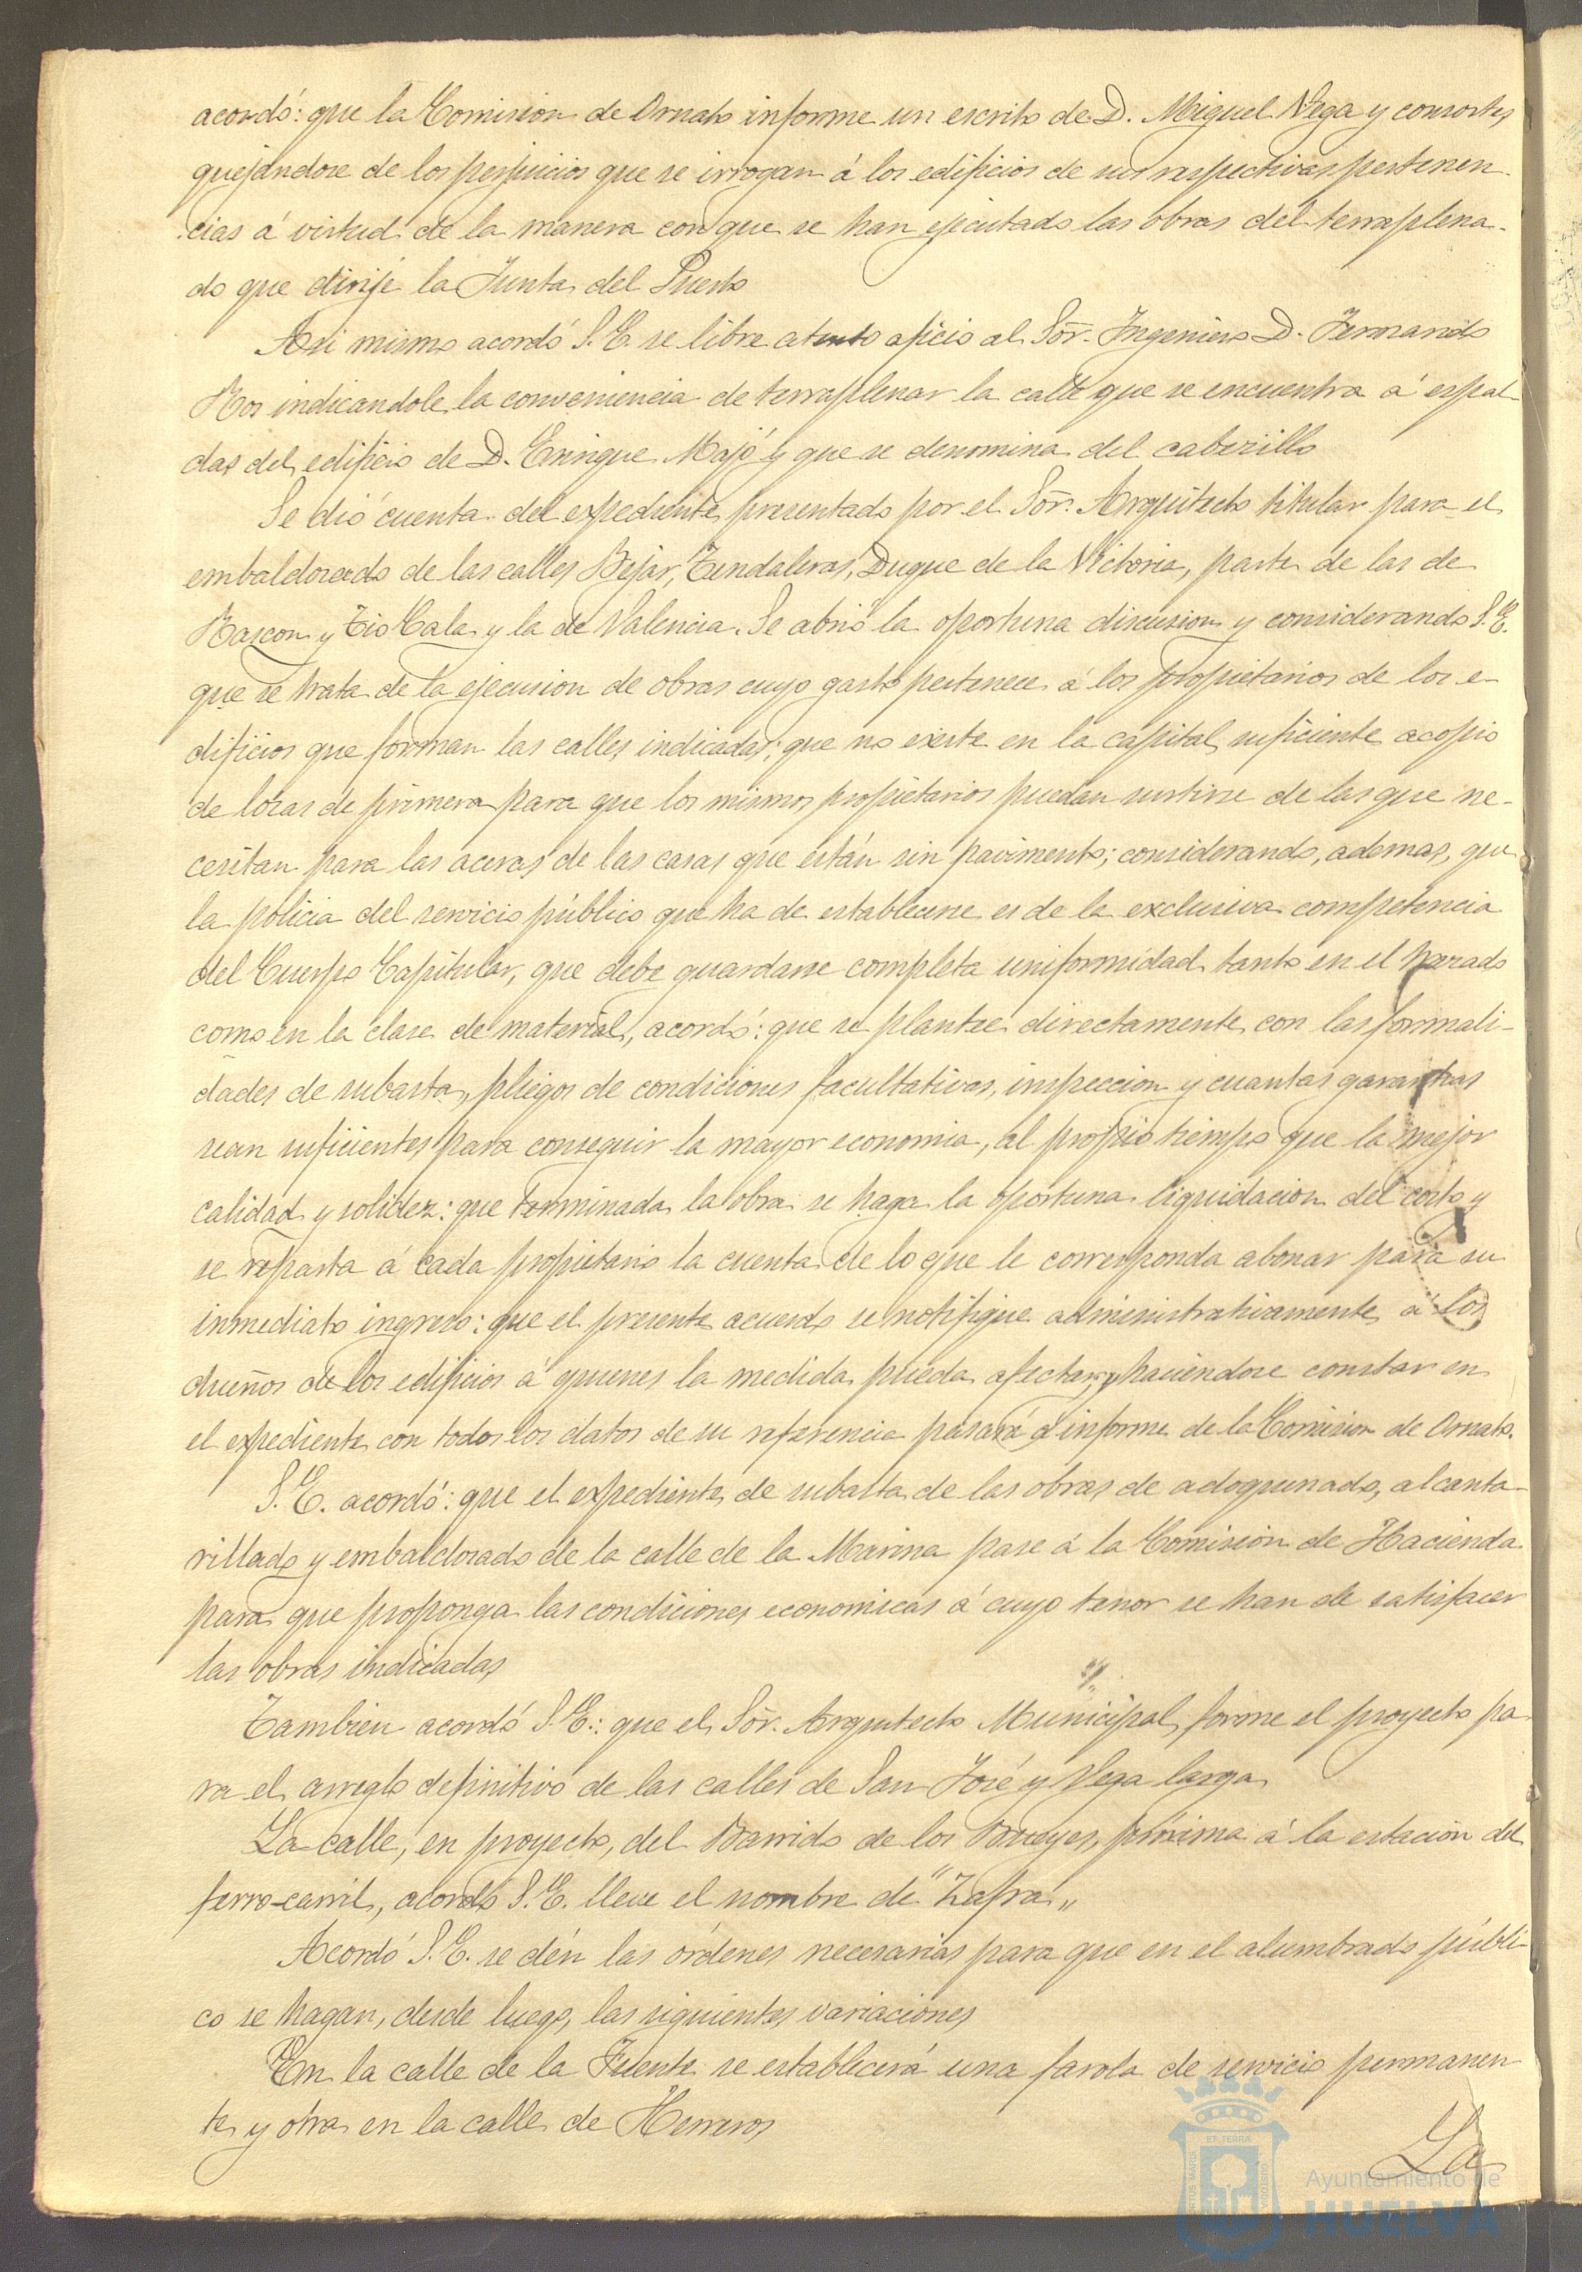 acordó: que la Comision de Ornato informe un escrito de D. Miguel Vega y consortes,
quejándose de los perjuicios que se irrogan á los edificios de sus respectivas pertenen-
cias á virtud de la manera con que se han ejecutado las obras del terraplena-
do que dirije la Junta del Puerto
Asi mismo acordó S. E. se libre atento oficio al Sor. Ingeniero D. Fernando
Ros indicandole la conveniencia de terraplenar la calle que se encuentra á espal-
das del edificio de D. Enrique Majó y que se denomina del cabezillo
Se dió cuenta del expediente presentado por el Sor. Arquitecto titular para el
embaldosado de las calles Bejar, Tendaleras, Duque de la Victoria, parte de las de
Rascon y Tio Cala y la de Valencia. Se abrió la oportuna discusion y considerando S. E.
que se trata de la ejecusion de obras cuyo gasto pertenece á los propietarios de los e-
dificios que forman las calles indicadas; que no existe en la capital suficiente acopio
de losas de primera para que los mismos propietarios puedan surtirse de las que ne-
cesitan para las aceras de las casas que están sin pavimento; considerando, ademas, que
la policia del servicio público que ha de establecerse es de la exclusiva competencia
del Cuerpo Capitular, que debe guardarse completa uniformidad tanto en el trazado
como en la clase de material, acordó: que se plantee directamente con las formali-
dades de subasta, pliegos de condiciones facultativas, inspeccion y cuantas garantias
sean suficientes para conseguir la mayor economia, al propio tiempo que la mejor
calidad y solidez: que terminada la obra se haga la oportuna liquidacion del costo y
se reparta á cada propietario la cuenta de lo que le corresponda abonar para su
inmediato ingreso: que el presente acuerdo se notifique administrativamente á los
dueños de los edificios á quienes la medida pueda afectar, y haciendose constar en
el expediente con todos los datos de su referencia pasará á informe de la Comision de Ornato.
S. E. acordó: que el expediente de subasta de las obras de adoquinado, alcanta-
rillado y embaldosado de la calle de la Marina pase á la Comision de Hacienda
para que proponga las condiciones economicas á cuyo tenor se han de satisfacer
las obras indicadas
Tambien acordó S. E.: que el Sor. Arquitecto Municipal, forme el proyecto pa-
ra el arreglo definitivo de las calles de San José y Vega larga
La calle, en proyecto, del Barrido de los Bueyes, próxima á la estacion del
ferro-carril, acordó S. E. lleve el nombre de "Zafra"
Acordó S. E. se dén las órdenes necesarias para que en el alumbrado públi-
co se hagan, desde luego, las siguientes variaciones
En la calle de la Fuente se establecerá una farola de servicio permanen-
te, y otra en la calle de Herreros
La
Ayuntamiento de
HUELVA